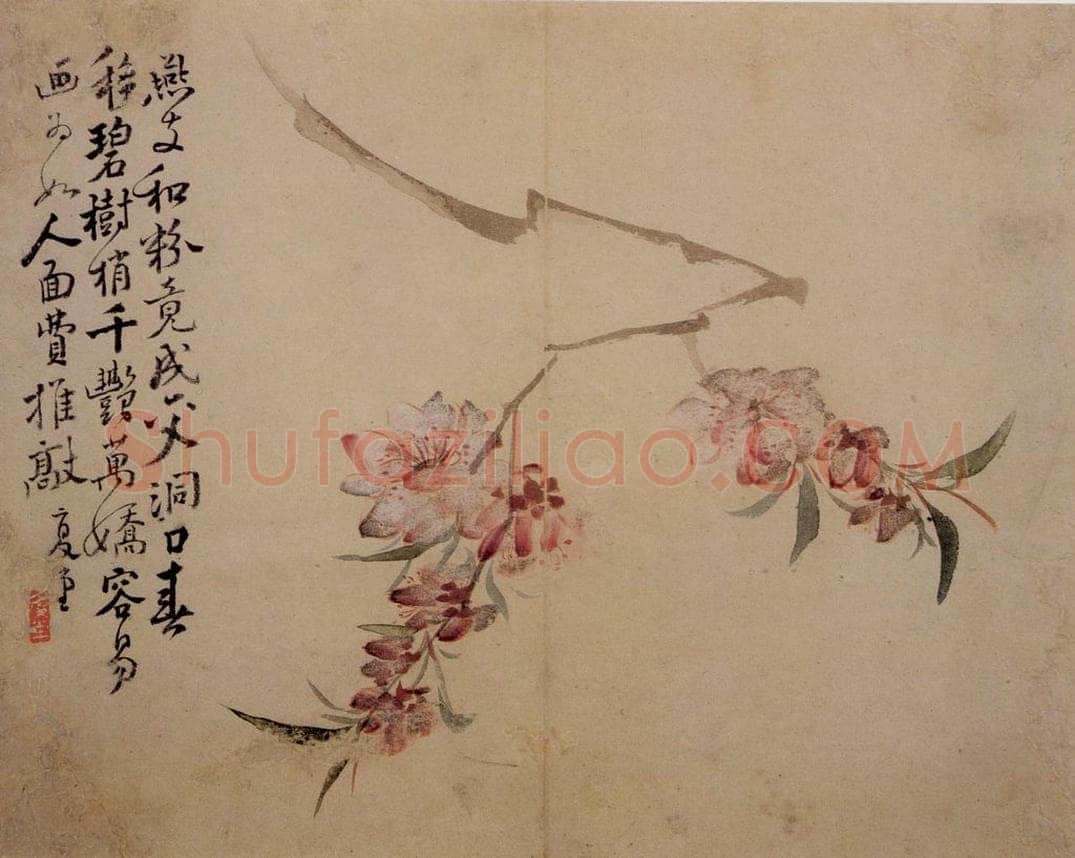 燕支和粉竟成交洞口春
移碧樹梢千艷萬嬌容易
画为如人面費推敲 复堂
Shufaziliao.com